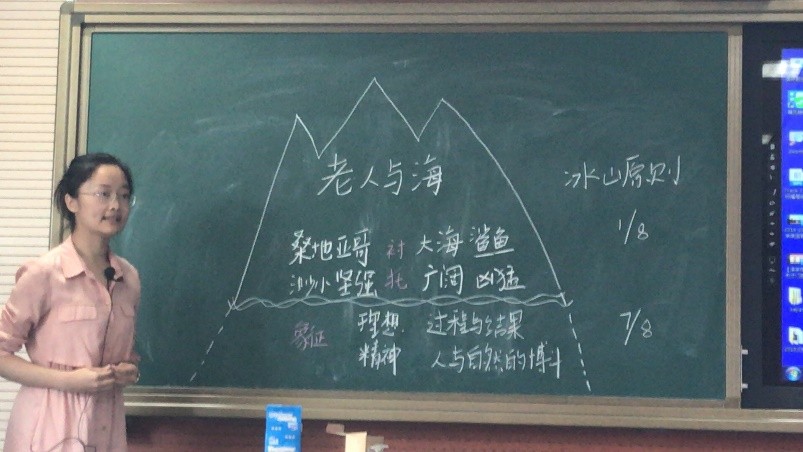 老人与海
冰山原则
1/8
桑地亚哥 衬 大海 鲨鱼
渺小 坚强 托 广阔 凶猛
7/8
象征 理想 过程与结果
精神 人与自然的搏斗